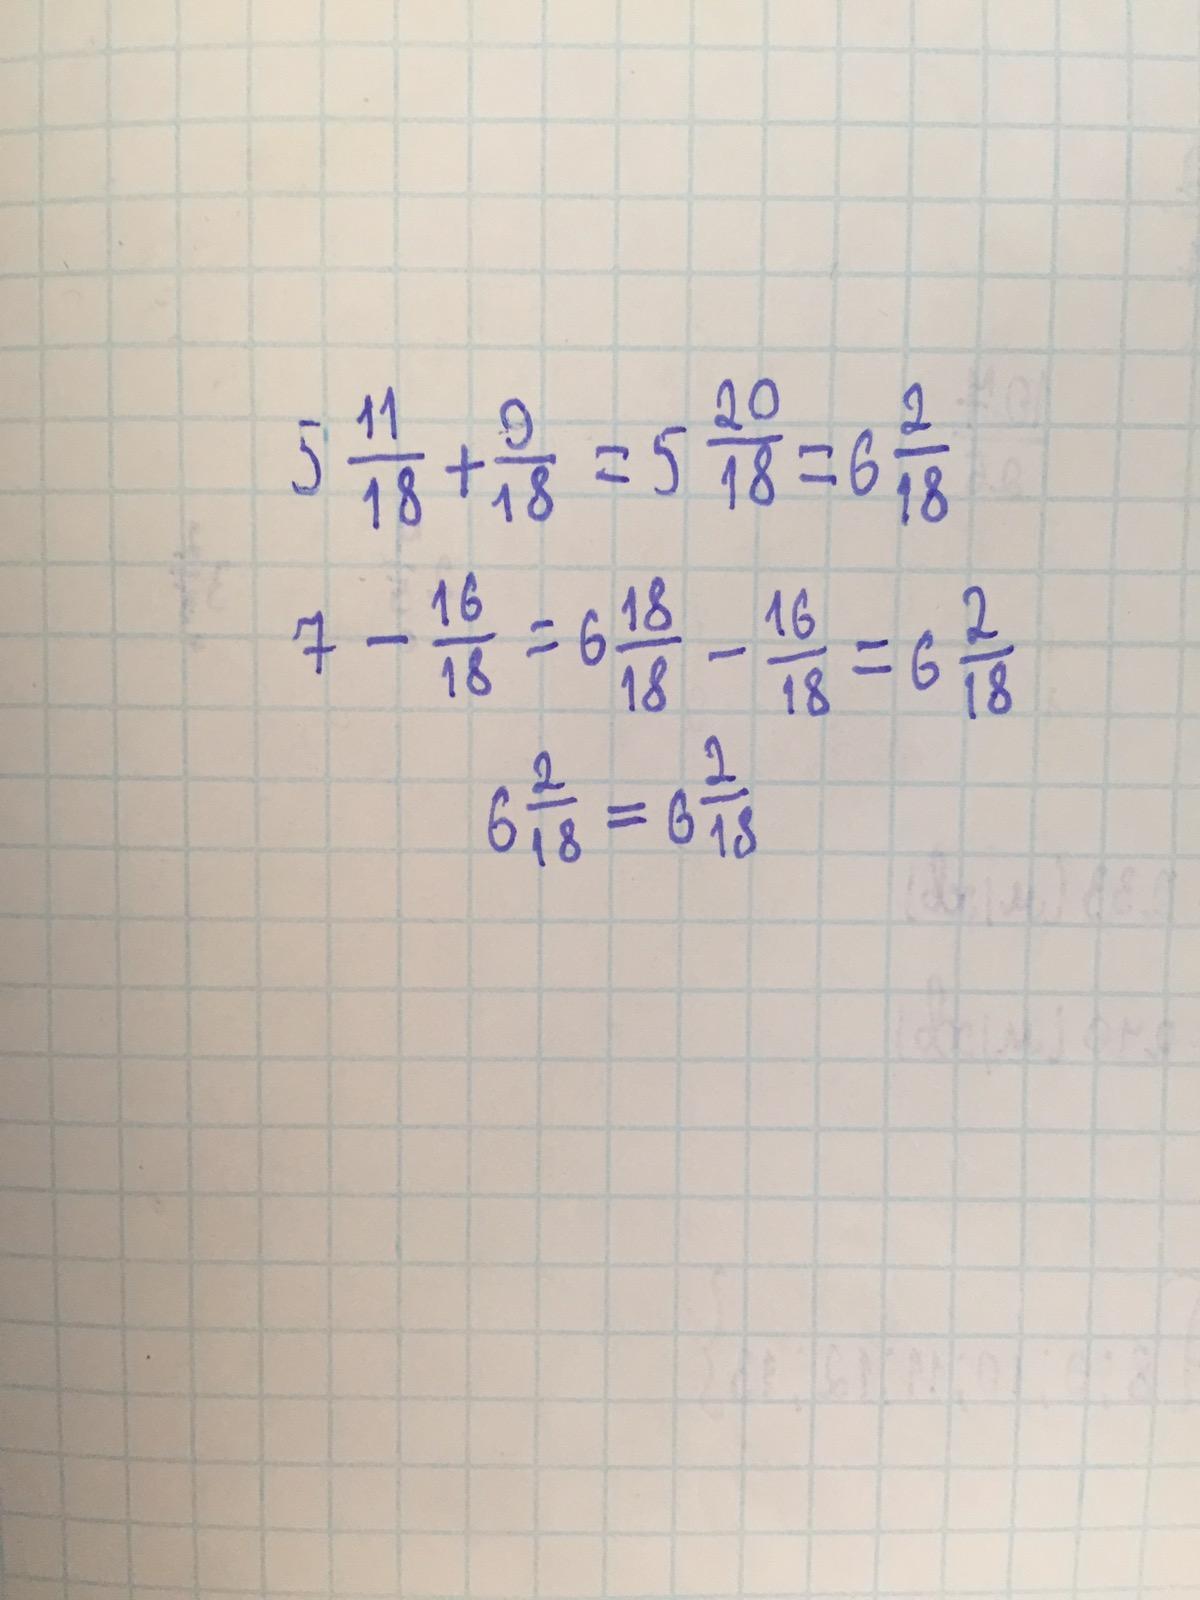 5 11/18 + 9/18 = 5 20/18 = 6 2/18
7 - 16/18 = 6 18/18 - 16/18 = 6 2/18
6 2/18 = 6 2/18